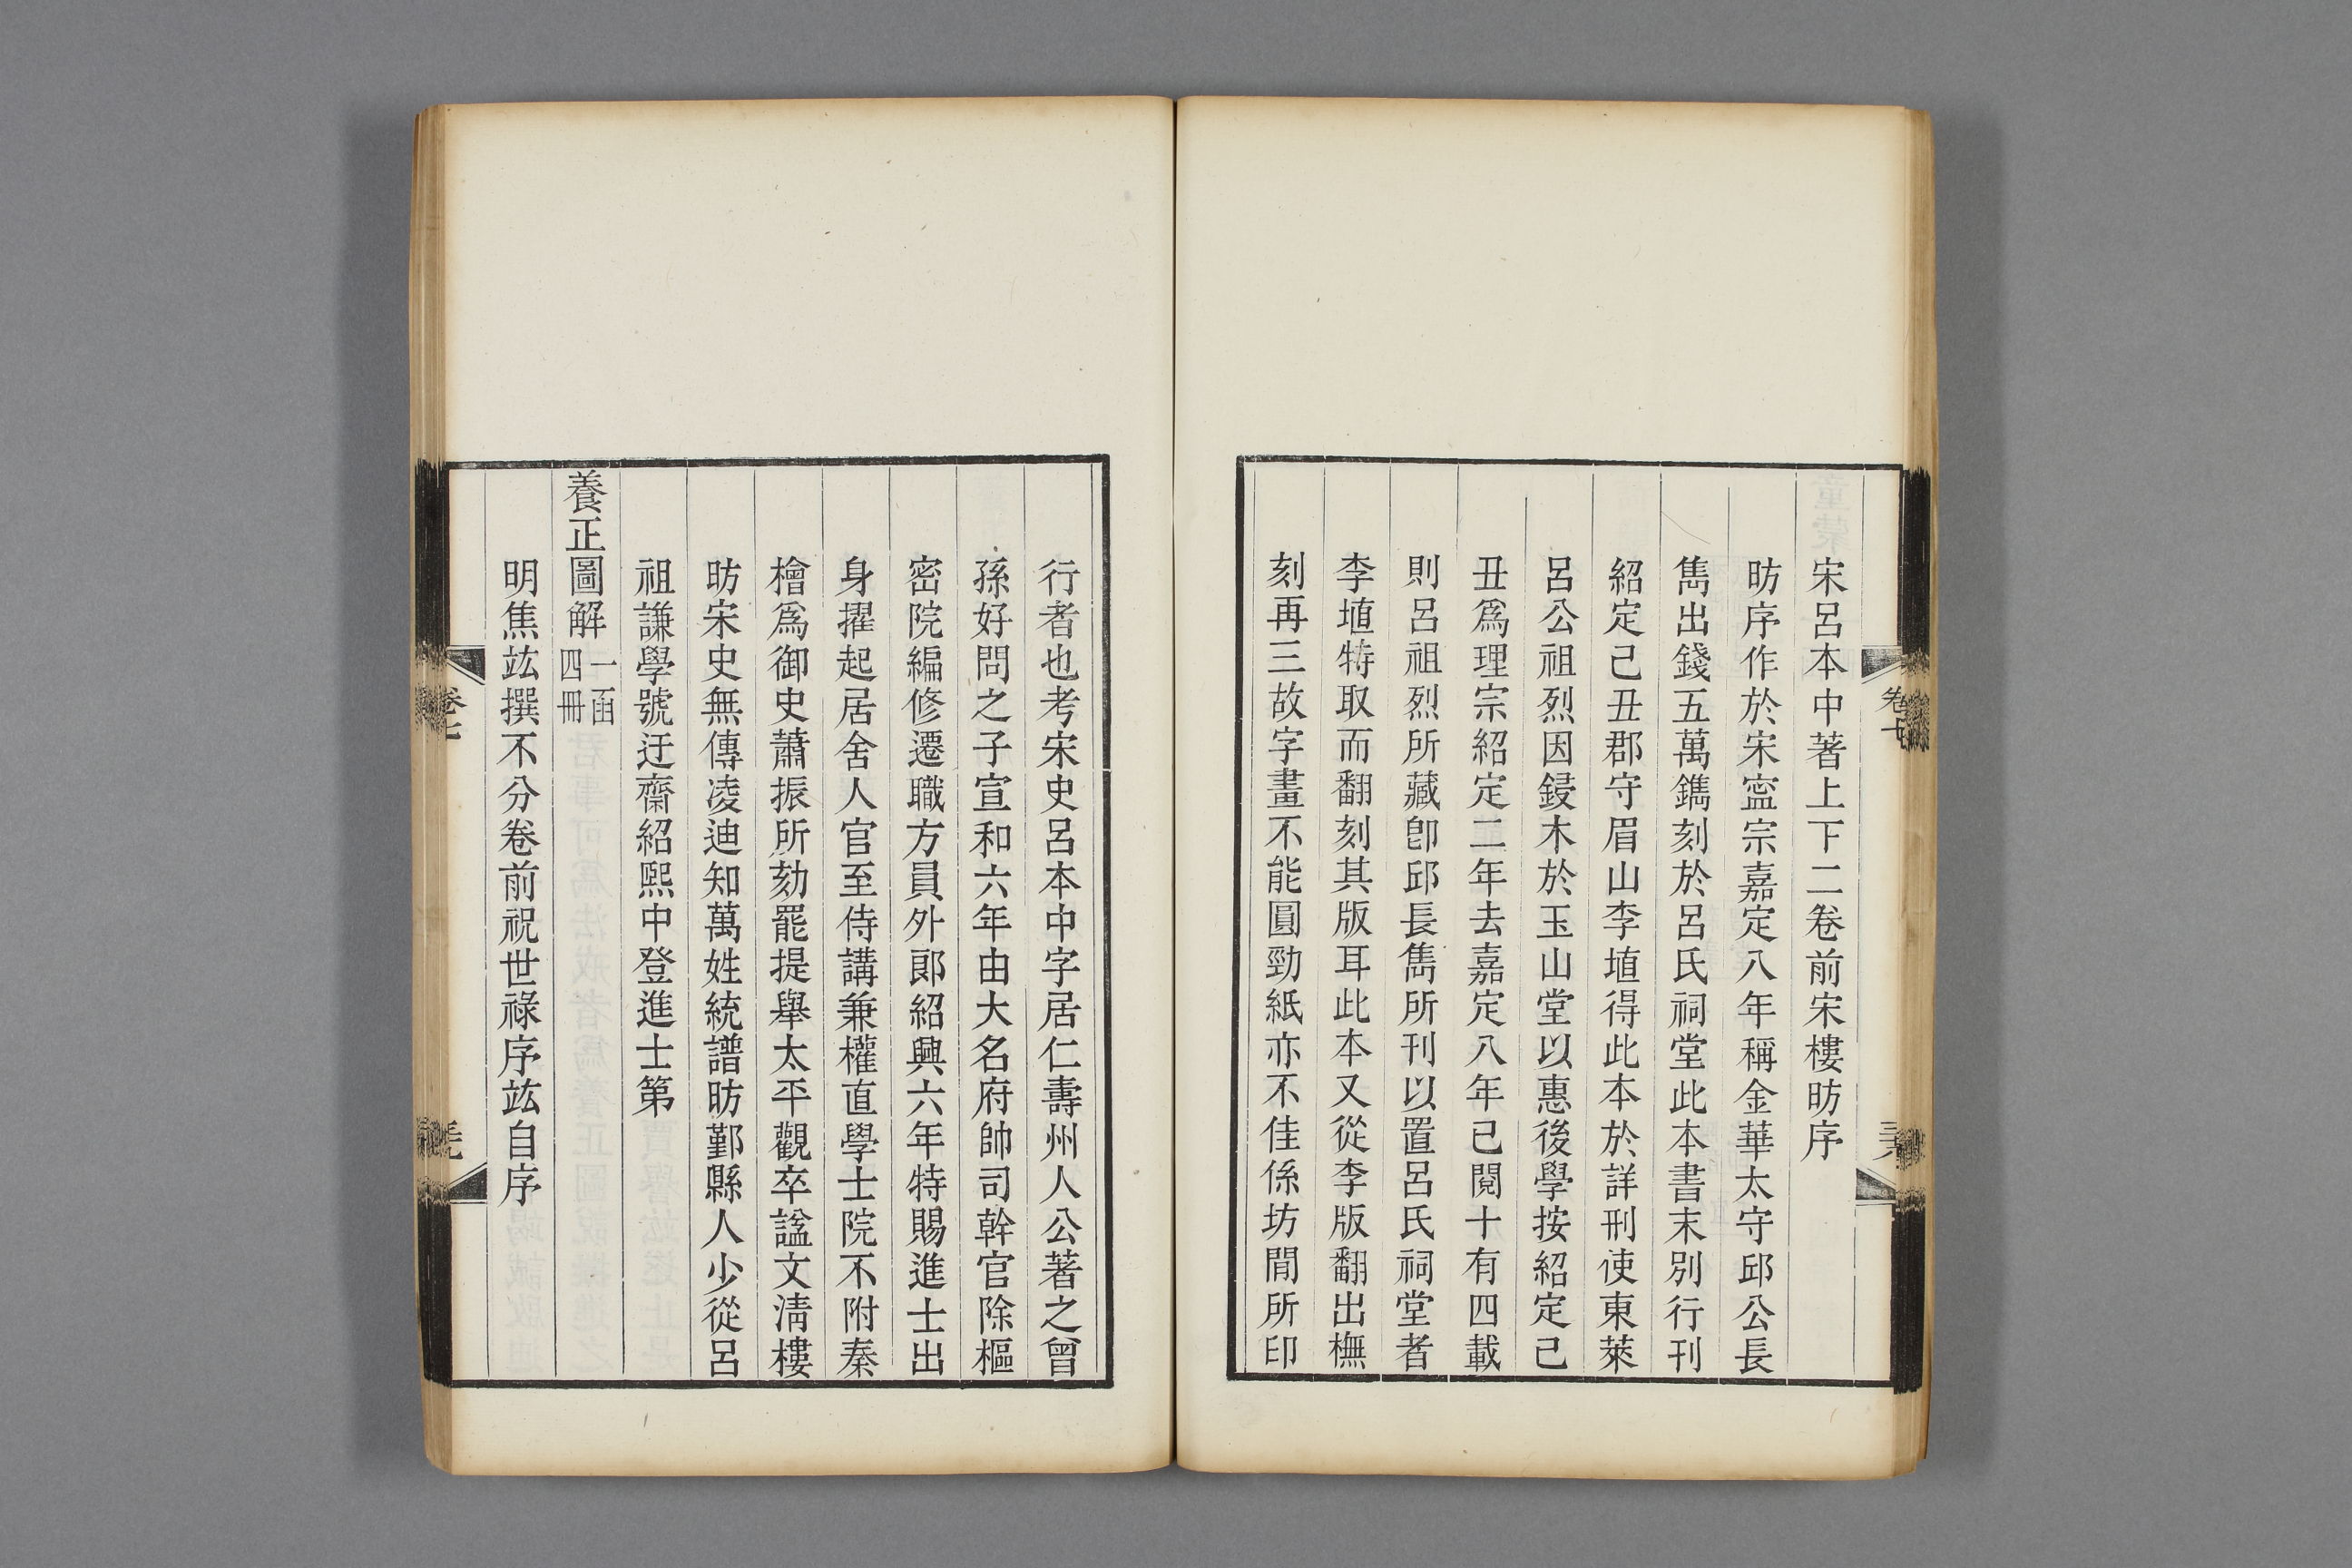 宋呂本中著上下二卷前宋樓昉序
昉序作於宋寍宗嘉定八年稱金華太守邱公長
雋出錢五萬鐫刻於呂氏祠堂此本書末別行刊
紹定己丑郡守眉山李埴得此本於詳刑使東萊
呂公祖烈因鋟木於玉山堂以惠後學按紹定己
丑爲理宗紹定二年去嘉定八年已閱十有四載
則呂祖烈所藏卽邱長雋所刊以置呂氏祠堂者
李埴特取而翻刻其版耳此本又從李版翻出橅
刻再三故字畫不能圓勁紙亦不佳係坊間所印
行者也考宋史呂本中字居仁壽州人公著之曾
孫好問之子宣和六年由大名府帥司幹官除樞
密院編修遷職方員外郎紹興六年特賜進士出
身擢起居舍人官至侍講兼權直學士院不附秦
檜爲御史蕭振所劾罷提舉太平觀卒諡文淸樓
昉宋史無傳凌迪知萬姓統譜昉鄞縣人少從呂
祖謙學號迂齋紹熙中登進士第
養正圖解 一函四冊
明焦竑撰不分卷前祝世祿序竑自序
卷七